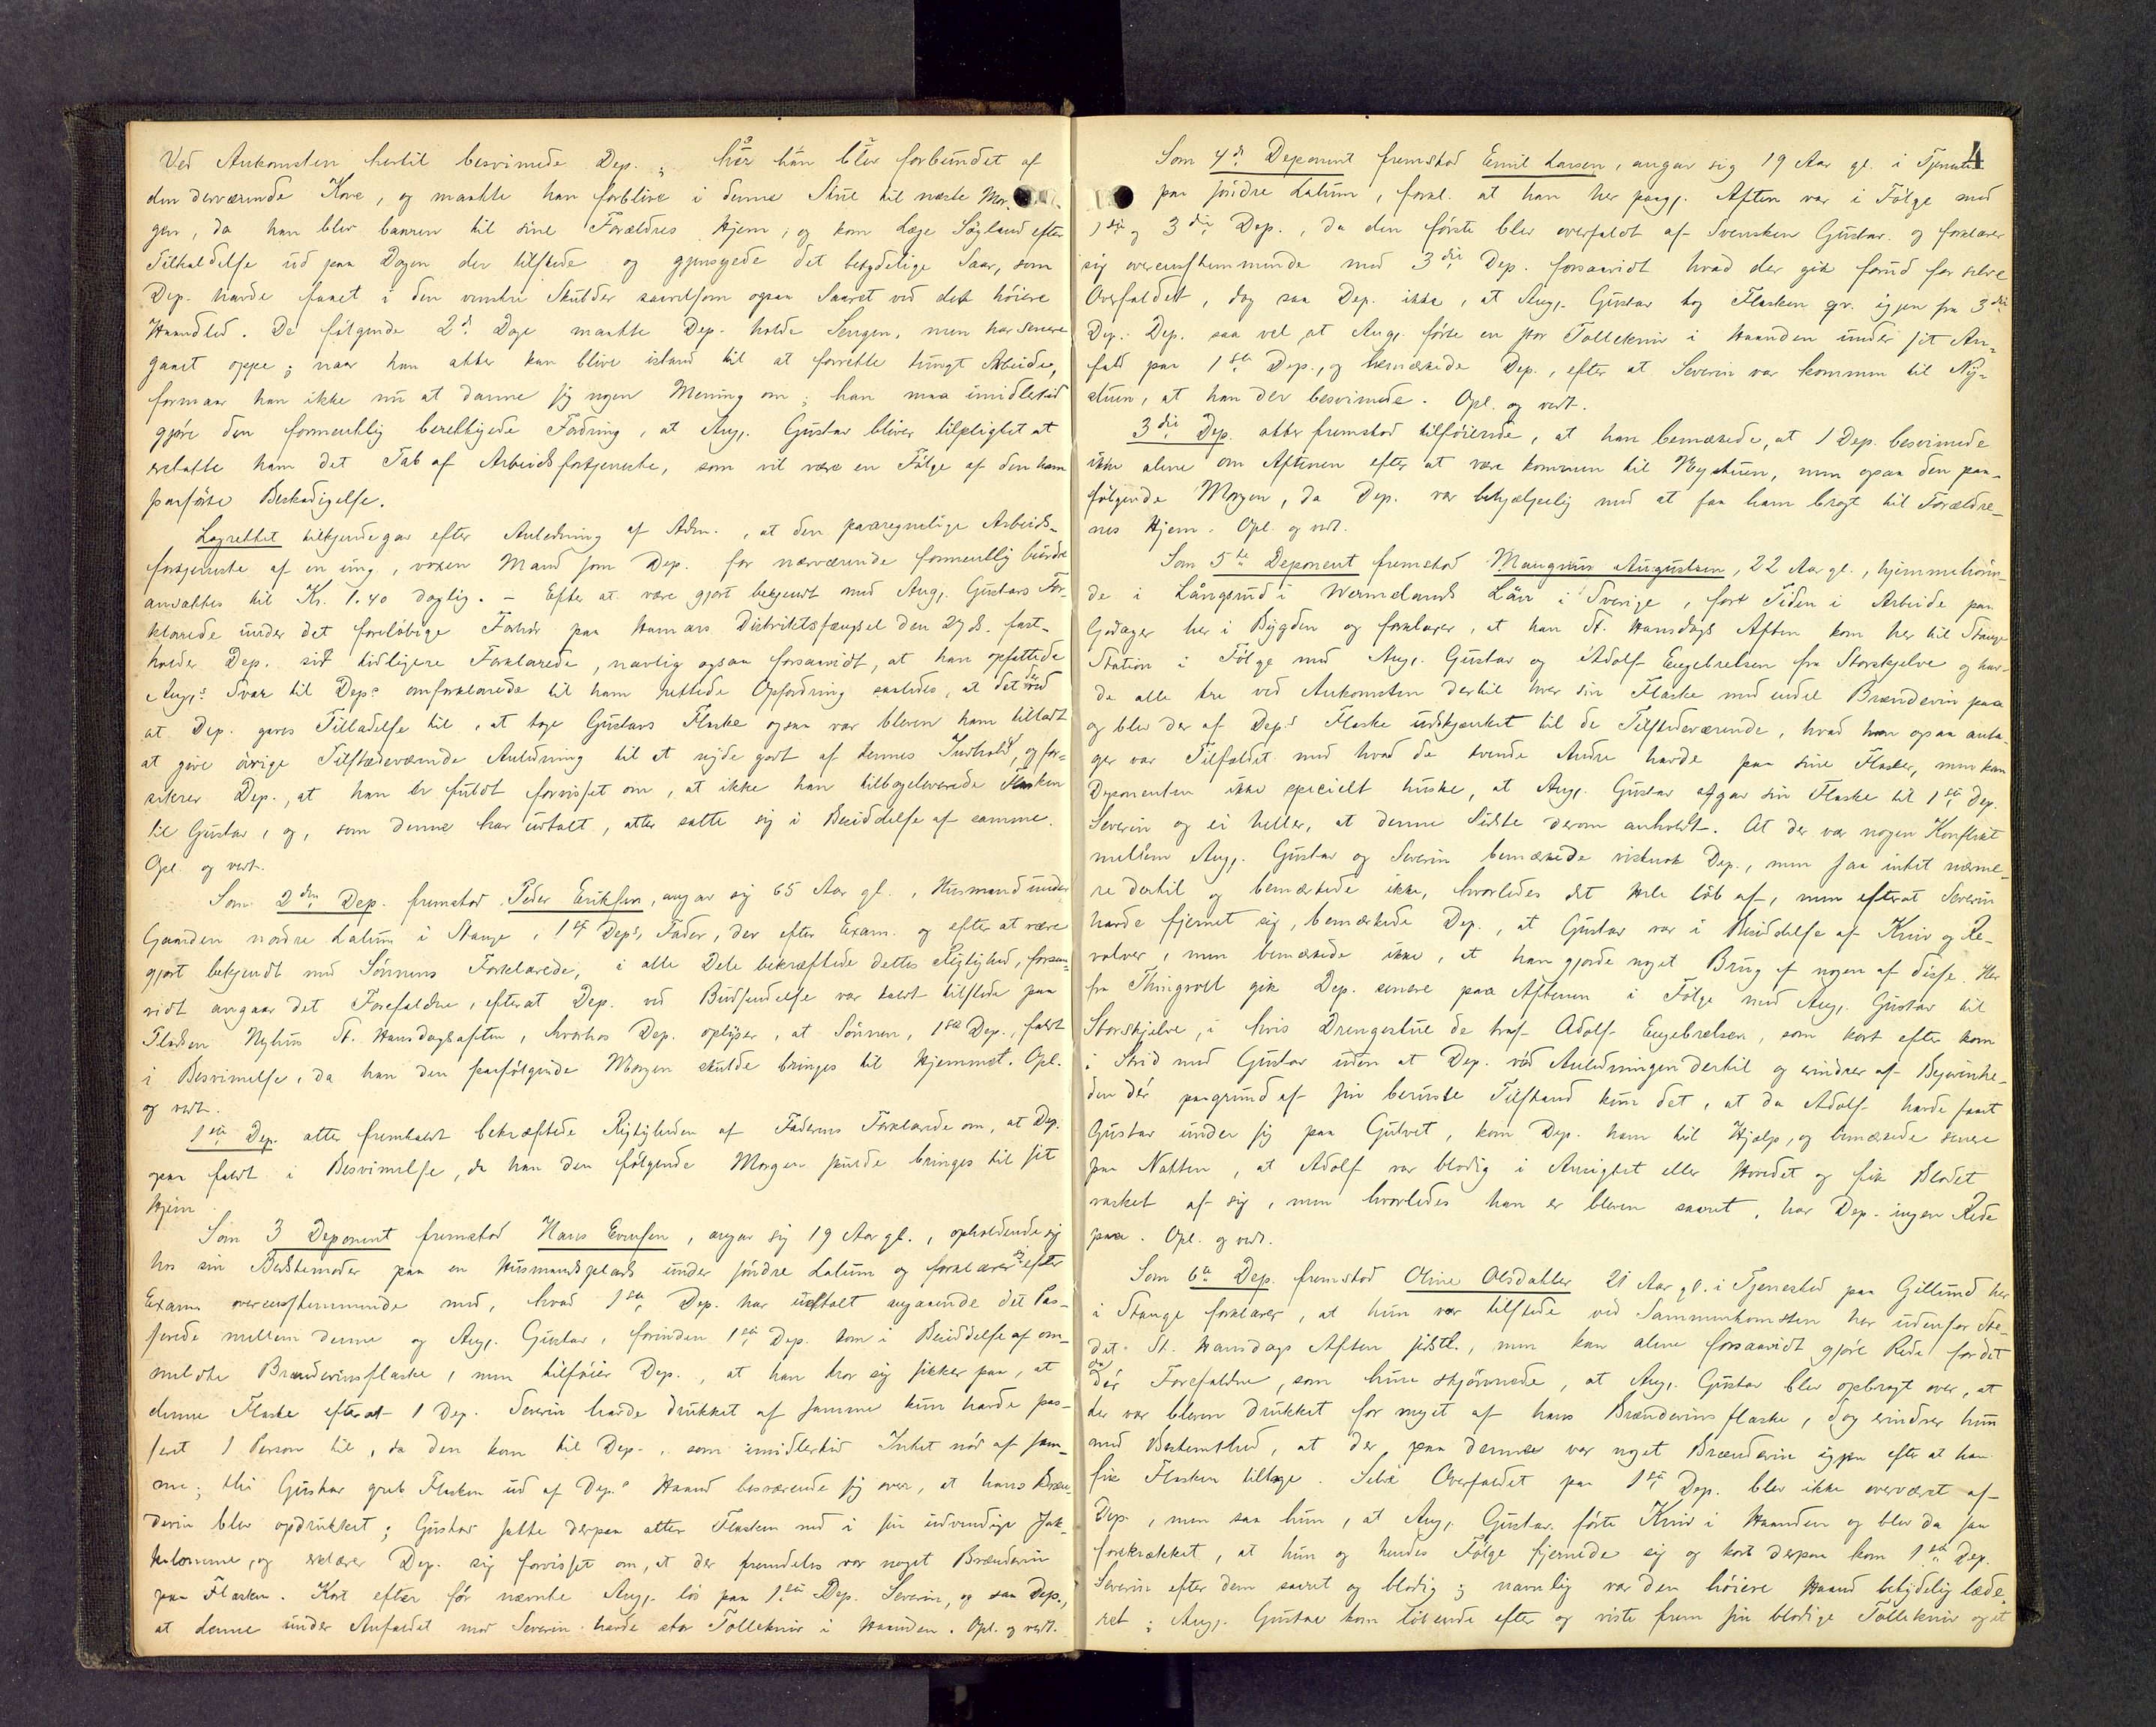 Ved Ankomsten hertil besvimede Dep.; hvor han blev forbundet af
den derværende Kone, og maatte han forblive i denne Stue til næste Mor-
gen, da han blev baaren til sine Forældres Hjem, og kom Læge Søgland efter
Tilkaldelse ud paa Dagen der tilstede og gjensyede det betydelige Saar, som
Dep. havde faaet i den venstre Skulder saavelsom ogsaa Saaret ved det høiere
Haandled. De følgende 2de Dage maatte Dep. holde Sengen, men har senere
gaaet oppe; naar han atter kan blive istand til at forrette tungt Arbeide,
formaar han ikke nu at danne sig nogen Mening om; han maa imidlertid
gjøre den formentlig berettigede Fordring, at Ang. Gustav bliver tilpligtet at
erstatte ham det Tab af Arbeidsfortjeneste, som vil være en Følge af den ham
paaførte Beskadigelse.
Lagrettet tilkjendegav efter Anledning af Adm., at den paaregnelige Arbeids-
fortjeneste af en ung, voxen Mand som Dep. for nærværende formentlig burde
ansættes til Kr. 1.40 daglig. - Efter at være gjort bekjendt med Ang. Gustavs For-
klarede under det foreløbige Forhør paa Hamars Distriktsfængsel den 27 ds. fast-
holder Dep. sit tidligere Forklarede, navlig ogsaa forsaavidt, at han opfattede
Ang.s Svar til Dep.s omforklarede til ham rettede Opfordring saaledes, at det ved
at Dep. gaves Tilladelse til, at tage Gustavs Flaske ogsaa var bleven ham tilladt
at give øvrige Tilstedeværende Anledning til at nyde godt af dennes Indhold, og for-
sikrer Dep., at han er fuldt forvisset om, at ikke han tilbageleverede Flasken
til Gustav, og, som denne har udtalt, atter satte sig i Besiddelse af samme.
Opl. og vedt.
Som 2den Dep. fremstod Peder Eriksen, angav sig 65 Aar gl., Husmand under
Gaarden nordre Lalum i Stange, 1ste Dep.s Fader, der efter Exam. og efter at være
gjort bekjendt med Sønnens Forklarede, i alle Dele bekræftede dettes Rigtighed, forsaa-
vidt angaar det Forefaldne, efterat Dep. ved Budsendelse var kaldt tilstede paa
Pladsen Nyhus St. Hansdagsaften, hvorhos Dep. oplyser, at Sønnen, 1ste Dep., faldt
i Besvimelse, da han den paafølgende Morgen skulde bringes til Hjemmet. Opl.
og vedt.
1ste Dep. atter fremkaldt bekræftede Rigtigheden af Faderens Forklarede om, at Dep.
ogsaa faldt i Besvimelse, da han den følgende Morgen skulde bringes til sit
Hjem
Som 3 Deponent fremstod Hans Evensen, angav sig 19 Aar gl., opholdende sig
hos sin Bedstemoder paa en Husmandsplads under søndre Lalum og forklarer sig efter
Exam. overensstemmende med, hvad 1ste Dep. har udtalt angaaende det Pas-
serede mellem denne og Ang. Gustav, forinden 1ste Dep. kom i Besiddelse af om-
meldte Brændevinsflaske, men tilføier Dep., at han tror sig sikker paa, at
denne Flaske efterat 1 Dep. Severin havde drukket af samme kun havde pas-
seret 1 Person til, da den kom til Dep., som imidlertid Intet nød af sam-
me; thi Gustav greb Flasken ud af Dep.s Haand besværende sig over, at hans Bræn-
devin blev opdrukket; Gustav satte derpaa atter Flasken ned i sin udvendige Jak-
kelomme, og erklærer Dep. sig forvisset om, at der fremdeles var noget Brændevin
paa Flasken. Kort efter før nævnte Ang. løs paa 1ste Dep. Severin, og saa Dep.,
at denne under Anfaldet mod Severin havde stor Tolleknix i Haanden. Opl. og vedt.
4
Som 4de Deponent fremstod Emil Larsen, angav sig 19 Aar gl. i Tjeneste
paa søndre Lalum, forkl. at han her paagj. Aften var i Følge med
1ste og 3die Dep., da den første blev overfaldt af Svensken Gustav og forklarer
sig overensstemmende med 3die Dep. forsaavidt hvad der gik forud for selve
Overfaldet, dog saa Dep. ikke, at Ang. Gustav tog Flasken gv. igjen fra 3die
Dep. Dep. saa vel at Ang. førte en stor Tollekniv i Haanden under sit An-
fald paa 1ste Dep., og bemærkede Dep., efter at Severin var kommen til Ny-
stuen, at han der besvimede. Opl. og vedt.
3die Dep. atter fremstod tilføiende, at han bemærkede, at 1 Dep. besvimede
ikke alene om Aftenen efter at være kommen til Nystuen, men ogsaa den paa-
følgende Morgen, da Dep. var behjælpelig med at faa ham bragt til Forældre-
nes Hjem. Opl. og vedt.
Som 5te Deponent fremstod Mangnus Augustsen, 22 Aar gl., hjemmehøren-
de i Långsrud i Wermelands Län i Sverige, fort Tiden i Arbeide paa
Godager her i Bygden og forklarer, at han St. Hansdags Aften kom her til Stange
Station i Følge med Ang. Gustav og Adolf Engebretsen fra Storskjelve og hav-
de alle tre ved Ankomsten dertil hver sin Flaske med endel Brændevin paa
og blev der af Dep.s Flaske udskjænket til de Tilstedeværende, hvad han ogsaa anta-
ger var Tilfældet med hvad de tvende Andre havde paa sine Flasker, men kan
Deponenten ikke specielt huske, at Ang. Gustav afgav sin Flaske til 1ste Dep.
Severin og ei heller, at denne Sidste derom anholdt. At der var nogen Konflikt
mellem Ang. Gustav og Severin bemærkede vistnok Dep., men saa intet nærme-
re dertil og bemærkede ikke, hvorledes det Hele løb af, men efterat Severin
havde fjernet sig, bemærkede Dep., at Gustav var i Besiddelse af Kniv og Re-
volver, men bemærkede ikke, at han gjorde noget Brug af nogen af disse. Her
fra Thingvold gik Dep. senere paa Aftenen i Følge med Ang. Gustav til
Storskjelve, i hvis Drengestue de traf Adolf Engebretsen, som kort efter kom
i Strid med Gustav uden at Dep. ved Anledningen dertil og erindrer af Begivenhe-
den dér paagrund af sin beruste Tilstand kun det, at da Adolf havde faaet
Gustav under sig paa Gulvet, kom Dep. ham til Hjælp, og bemærkede senere
paa Natten, at Adolf var blodig i Ansigtet eller Hovedet og fik Blodet
vasket af sig, men hvorledes han er bleven saaret, har Dep. ingen Rede
paa. Opl. og vedt.
Som 6te Dep. fremstod Oline Olsdatter 21 Aar gl. i Tjenested paa Gillund her
i Stange forklarer, at hun var tilstede ved Sammenkomsten her udenfor Ste-
det St. Hansdags Aften sidstl., men kan alene forsaavidt gjøre Rede for det
der Forefaldne, som hun skjønnede, at Ang. Gustav blev opbragt over, at
der var bleven drukket for meget af hans Brændevinsflaske, dog erindrer hun
med Bestemthed, at der paa denne var noget Brændevin igjen efter at han
fik Flasken tilbage. Selve Overfaldet paa 1ste Dep. blev ikke overværet af
Dep., men saa hun, at Ang. Gustav førte Kniv i Haanden og blev da saa
forskrækket, at hun og hendes Følge fjernede sig og kort derpaa kom 1ste Dep.
Severin efter dem saaret og blodig; navnlig var den høiere Haand betydelig læde-
ret; Ang. Gustav kom løbende efter og viste frem sin blodige Tollekniv og et